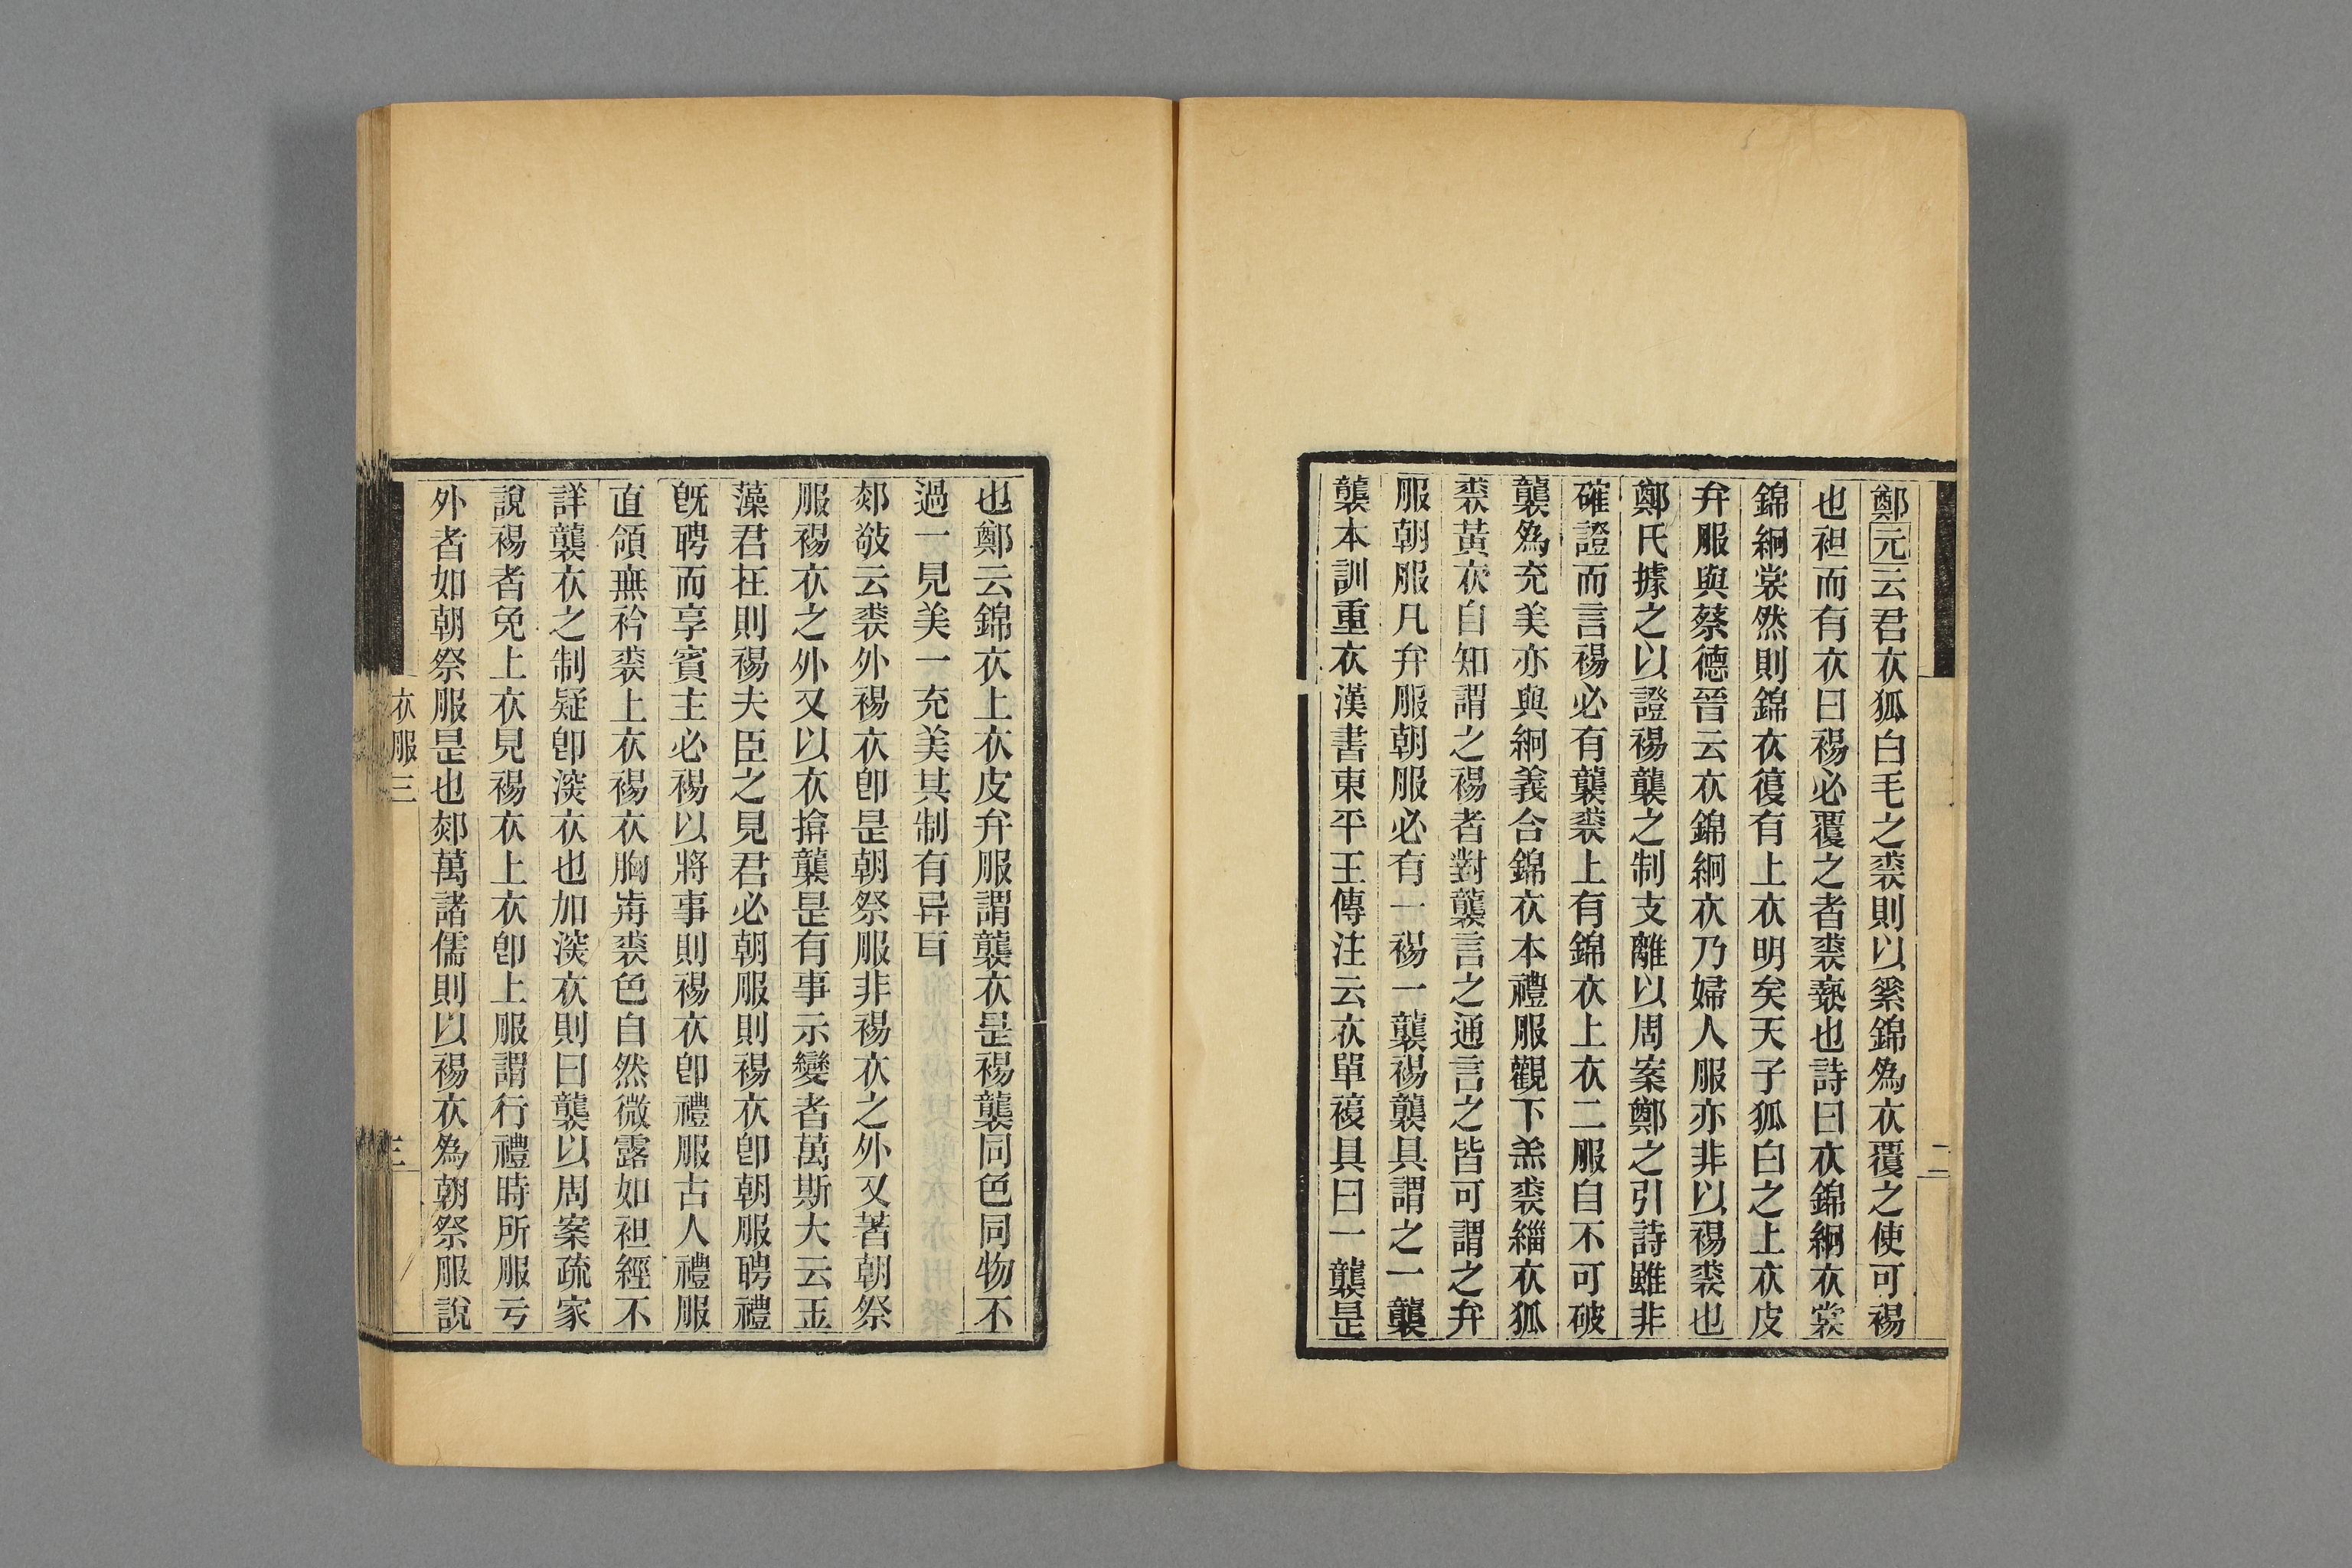 鄭元云君衣狐白毛之裘則以素錦爲衣覆之使可裼
也袒而有衣曰裼必覆之者裘褻也詩曰衣錦絅衣裳
錦絅裳然則錦衣復有上衣明矣天子狐白之上衣皮
弁服與蔡德晉云衣錦絅衣乃婦人服亦非以裼裘也
鄭氏據之以證裼襲之制支離以周案鄭之引詩雖非
確證而言裼必有襲裘上有錦衣上衣二服自不可破
襲爲充美亦與絅義合錦衣本禮服觀下羔裘緇衣狐
裘黃衣自知謂之裼者對襲言之通言之皆可謂之弁
服朝服凡弁服朝服必有一裼一襲裼襲具謂之一襲
襲本訓重衣漢書東平王傳注云衣單複具曰一襲是
二
也鄭云錦衣上衣皮弁服謂襲衣是裼襲同色同物不
過一見美一充美其制有异耳
郊敬云裘外裼衣卽是朝祭服非裼衣之外又著朝祭
服裼衣之外又以衣揜襲是有事示變者萬斯大云玉
藻君在則裼夫臣之見君必朝服則裼衣卽朝服聘禮
旣聘而享賓主必裼以將事則裼衣卽禮服古人禮服
直領無衿裘上衣裼衣胸歬裘色自然微露如袒經不
詳襲衣之制疑卽深衣也加深衣則曰襲以周案疏家
說裼者免上衣見裼衣上衣卽上服謂行禮時所服亏
外者如朝祭服是也郊萬諸儒則以裼衣爲朝祭服說
衣服三
三